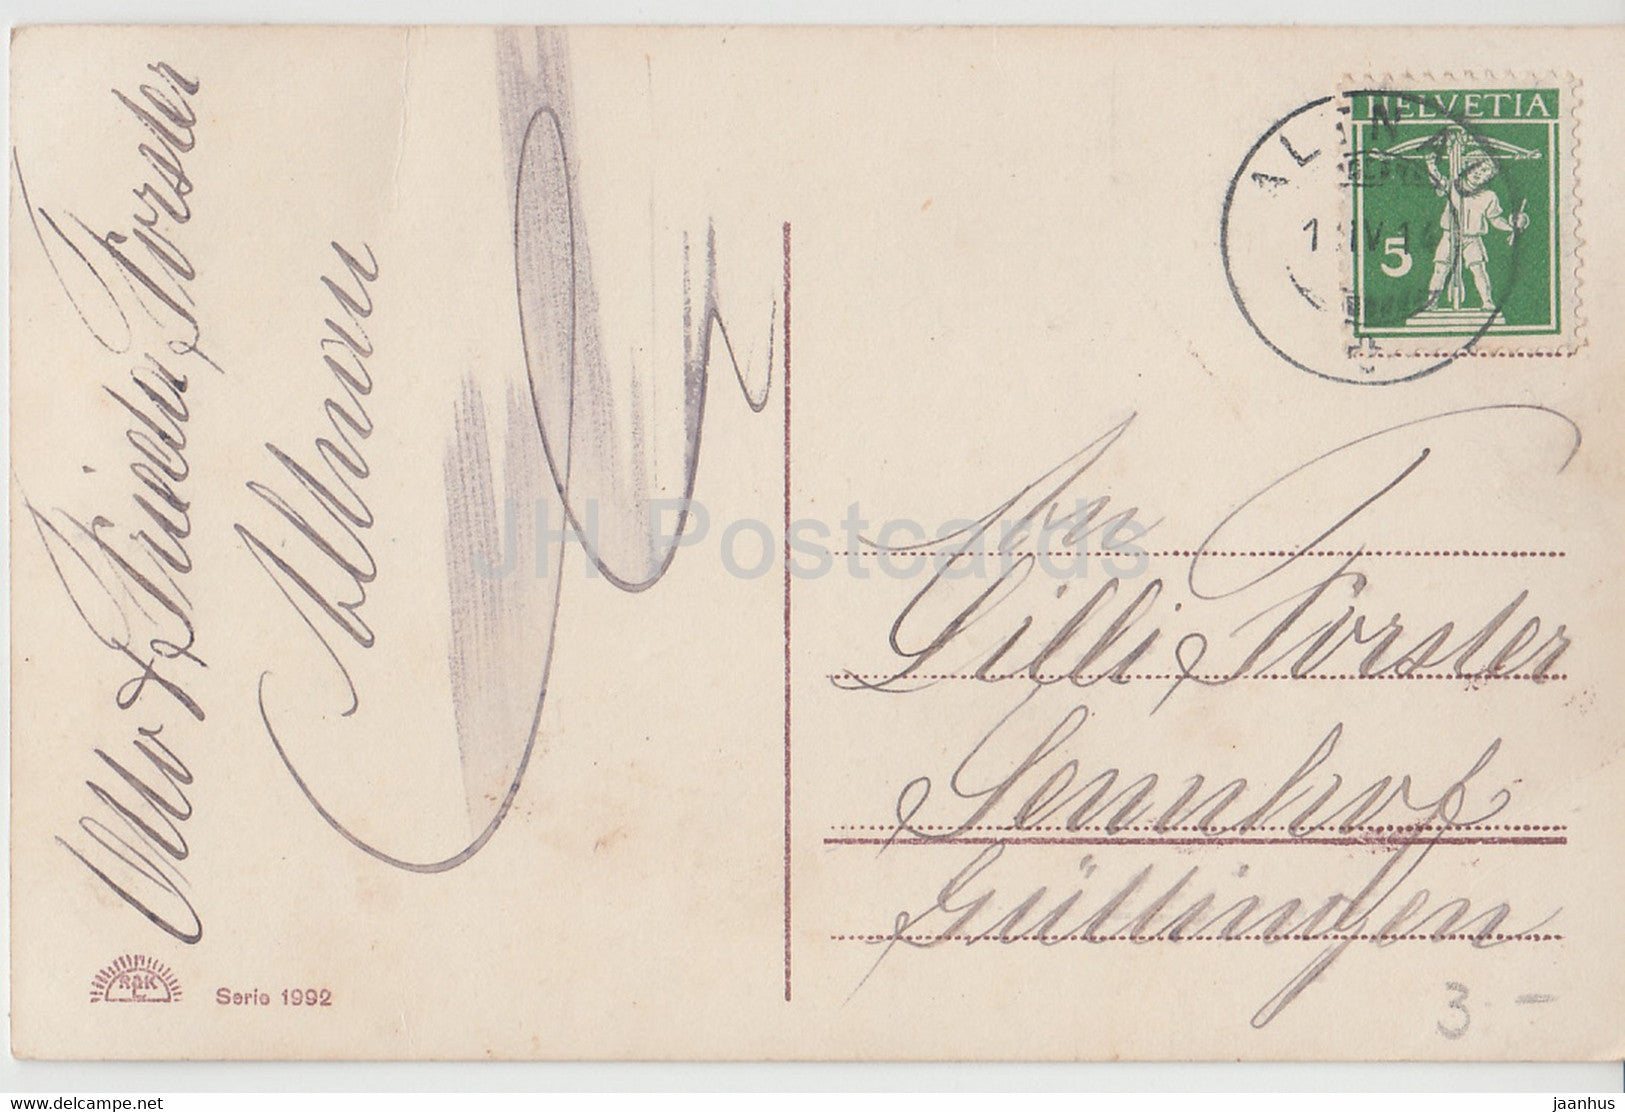 Otto & Frieda Forster
Altnau
HELVETIA
5
ALTNAU
1 IV 14
An
Lilli Forster
Sennhof
Güttingen
RPK
Serie 1992
3 -
JH Postcards
www.delcampe.net
jaanhus